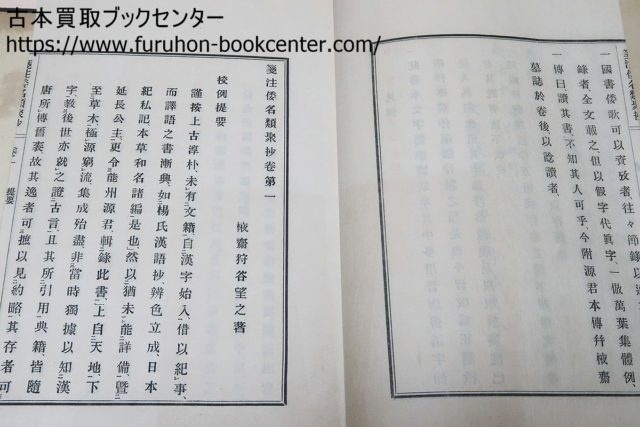 古本買取ブックセンター
https://www.furuhon-bookcenter.com/
一國書倭歌可以資攷者往々節錄以
錄者全文載之但以假字代眞字一倣萬葉集體例
一傳曰讀其書不知其人可乎今附源君本傳幷棭齋
墓誌於卷後以諗讀者
箋注倭名類聚抄卷第一
棭齋狩谷望之著
校例提要
謹按上古淳朴未有文籍自漢字始入借以紀事
而譯語之書漸興如楊氏漢語抄辨色立成日本
紀私記本草和名諸編是也然以猶未能詳備暨
延長公主更令能州源君輯錄此書上自天地下
至草木極源窮流集成殆盡非當時獨據以知漢
字敎後世亦就之證古言且其所引用典籍皆隨
唐所傳舊袠故其逸者可摭以見約略其存者可
箋注倭名類聚抄
提要